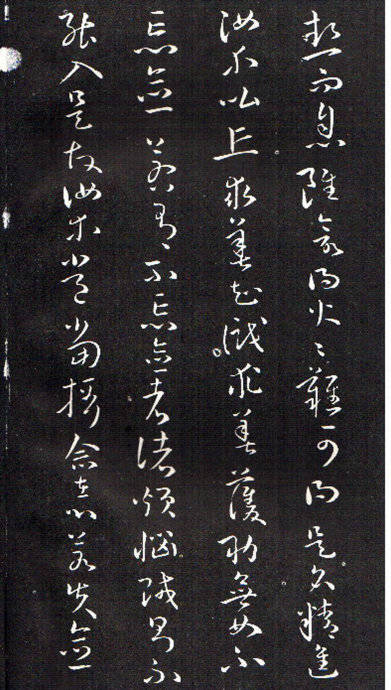 熱而息雖欲得火〻難可得是名精進
汝等比丘求善知識求善護助無如不
忘念若有不忘念者諸煩惱賊則不
能入是故汝等常當攝念在心若失念